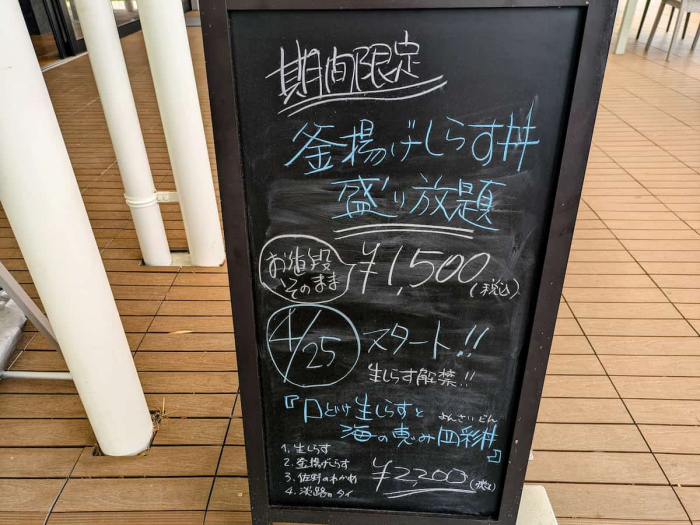 期間限定
釜揚げしらす丼
盛り放題
お値段
そのまま
¥1,500(税込)
4/25
スタート!!
生しらす解禁!!
『口どけ生しらすと
よんさいどん
海の恵み四彩丼』
1. 生しらす
2. 釜揚げしらす
3. 佐野のわかめ
4. 淡路のタイ
¥2,200(税込)